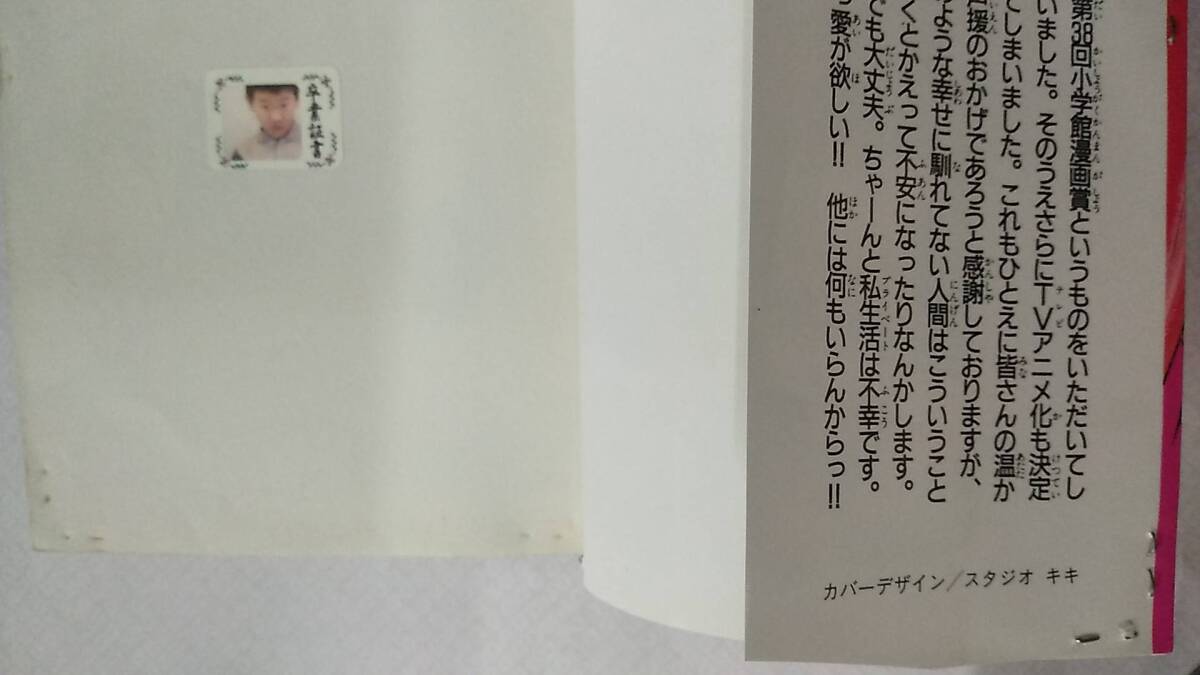 第38回小学館漫画賞というものをいただいてし
いました。そのうえさらにTVアニメ化も決定
てしまいました。これもひとえに皆さんの温か
援のおかげであろうと感謝しておりますが、
ような幸せに馴れてない人間はこういうこと
くとかえって不安になったりなんかします。
でも大丈夫。ちゃーんと私生活は不幸です。
愛が欲しい!! 他には何もいらんからっ!!
カバーデザイン/スタジオ キキ
卒業証書